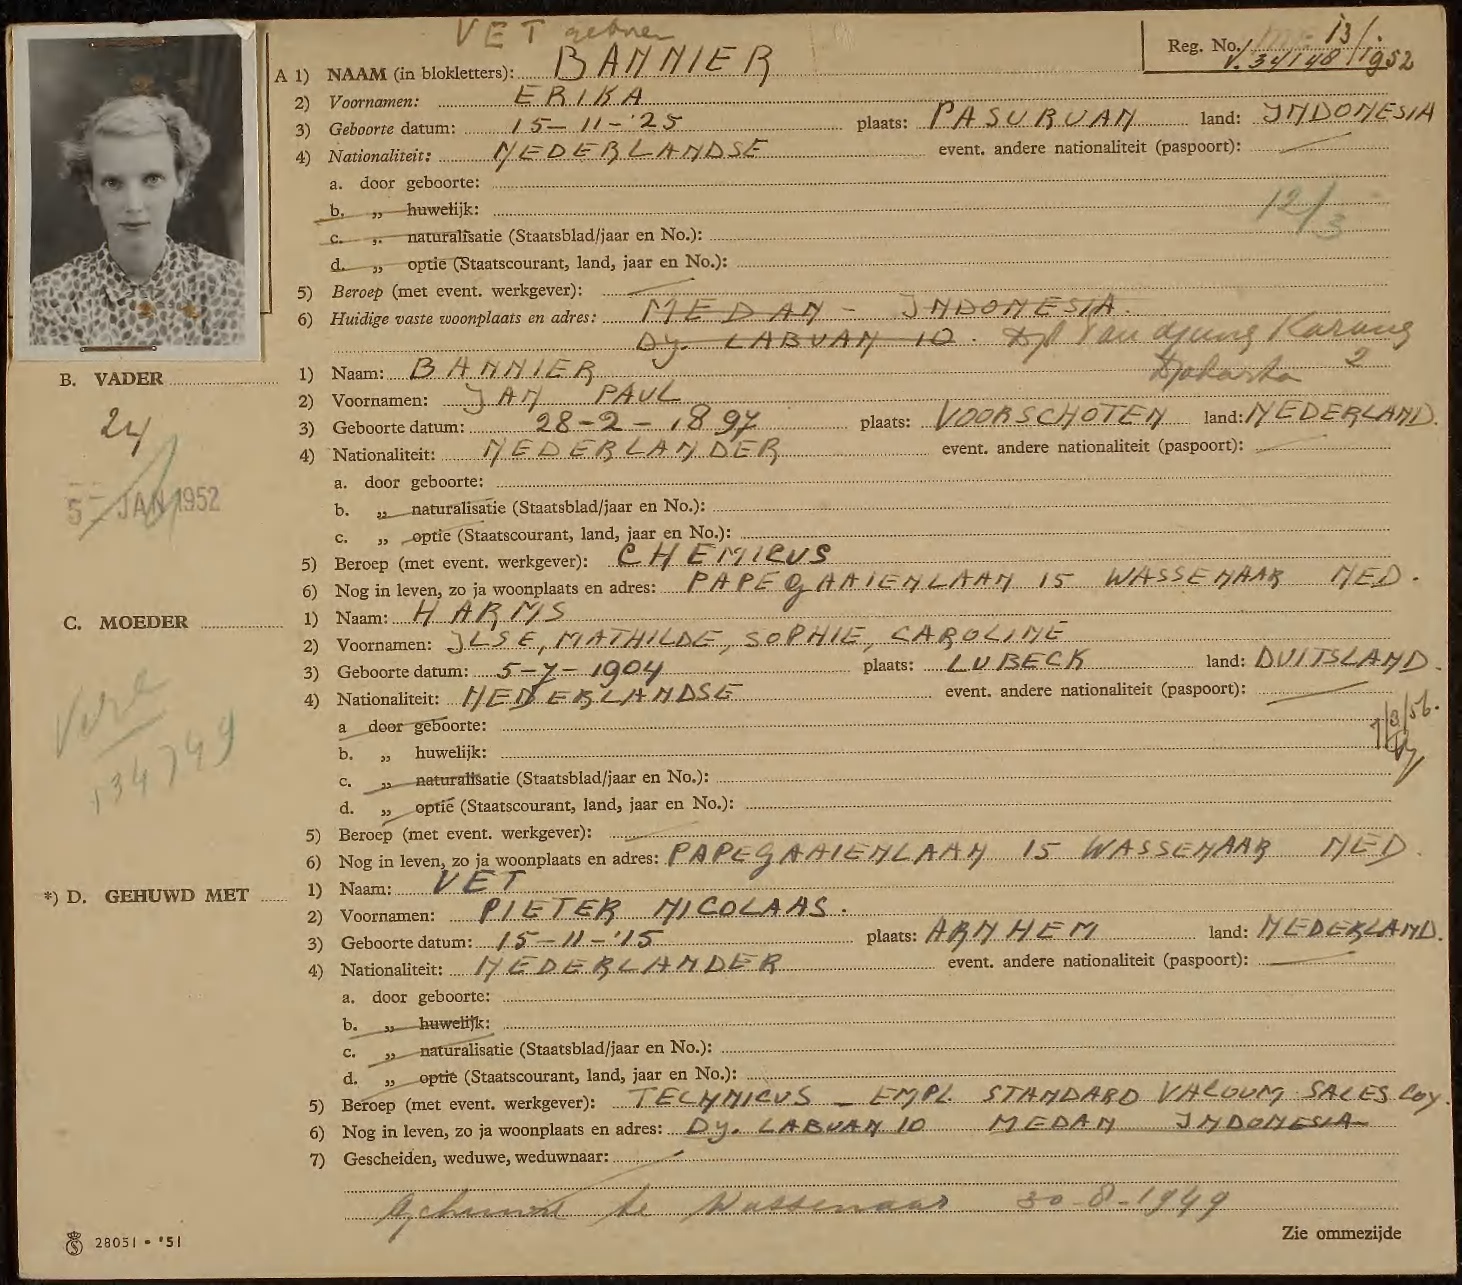 VET geboren
Reg. No. 13/.
V. 34148/1952
A 1) NAAM (in blokletters): BANNIER
2) Voornamen: ERIKA
3) Geboorte datum: 15-11-'25 plaats: PASURUAN land: INDONESIA
4) Nationaliteit: NEDERLANDSE event. andere nationaliteit (paspoort): —
a. door geboorte:
b. „ huwelijk:
12/3
c. „ naturalisatie (Staatsblad/jaar en No.):
d. „ optie (Staatscourant, land, jaar en No.):
5) Beroep (met event. werkgever): —
6) Huidige vaste woonplaats en adres: MEDAN - INDONESIA.
Dy. LABUAN 10. Djl Tandjung Karang
Djakarta 2
B. VADER
1) Naam: BANNIER
2) Voornamen: JAN PAUL
3) Geboorte datum: 28-2-1897 plaats: VOORSCHOTEN land: NEDERLAND.
24
4) Nationaliteit: NEDERLANDER event. andere nationaliteit (paspoort): —
a. door geboorte:
5 - JAN 1952
b. „ naturalisatie (Staatsblad/jaar en No.):
c. „ optie (Staatscourant, land, jaar en No.):
5) Beroep (met event. werkgever): CHEMICUS
6) Nog in leven, zo ja woonplaats en adres: PAPEGAAIENLAAN 15 WASSENAAR NED.
C. MOEDER
1) Naam: HARMS
2) Voornamen: ILSE, MATHILDE, SOPHIE, CAROLINE
3) Geboorte datum: 5-7-1904 plaats: LUBECK land: DUITSLAND.
4) Nationaliteit: NEDERLANDSE event. andere nationaliteit (paspoort): —
a door geboorte:
b. „ huwelijk:
134749
c. „ naturalisatie (Staatsblad/jaar en No.):
d. „ optie (Staatscourant, land, jaar en No.):
5) Beroep (met event. werkgever): —
6) Nog in leven, zo ja woonplaats en adres: PAPEGAAIENLAAN 15 WASSENAAR NED.
*) D. GEHUWD MET
1) Naam: VET
2) Voornamen: PIETER NICOLAAS.
3) Geboorte datum: 15-11-'15 plaats: ARNHEM land: NEDERLAND.
4) Nationaliteit: NEDERLANDER event. andere nationaliteit (paspoort): —
a. door geboorte:
b. „ huwelijk:
c. „ naturalisatie (Staatsblad/jaar en No.):
d. „ optie (Staatscourant, land, jaar en No.):
5) Beroep (met event. werkgever): TECHNICUS - EMPL STANDARD VACUUM SALES Coy.
6) Nog in leven, zo ja woonplaats en adres: Dy. LABUAN 10 MEDAN INDONESIA
7) Gescheiden, weduwe, weduwnaar: —
Gehuwd te Wassenaar 30-8-1949
28051 - '51
Zie ommezijde